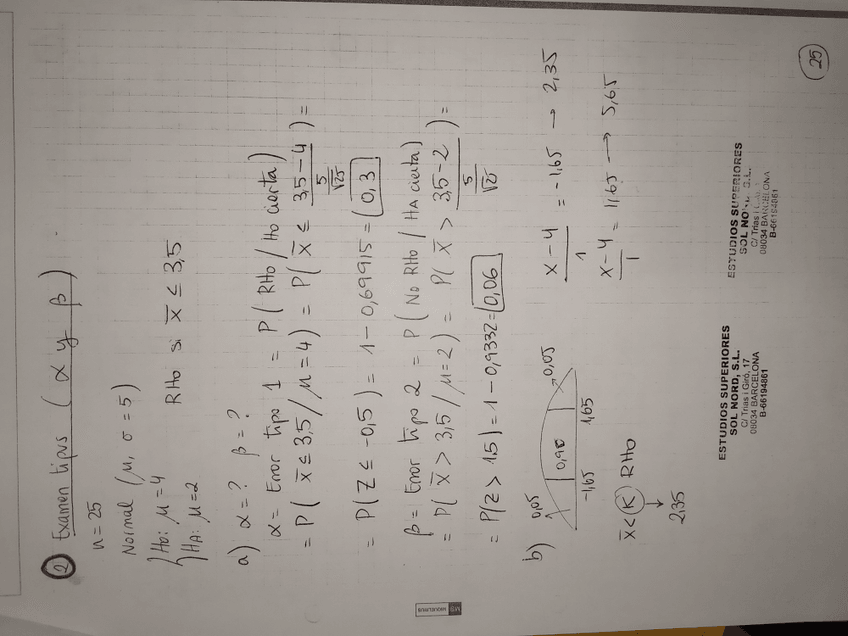 2) Examen tipus (α y β)
n = 25
Normal (μ, σ = 5)
H0: μ = 4
HA: μ = 2
RH0 si X̄ ≤ 3,5
a) α = ? β = ?
α = Error tipo 1 = P (RH0 / H0 cierta)
= P (X̄ ≤ 3,5 / μ = 4) = P (X̄ ≤ (3,5 - 4) / (5/√25)) =
= P (Z ≤ -0,5) = 1 - 0,69915 = 0,3
β = Error tipo 2 = P (No RH0 / HA cierta)
= P (X̄ > 3,5 / μ = 2) = P (X̄ > (3,5 - 2) / (5/√25)) =
= P (Z > 1,5) = 1 - 0,9332 = 0,06
b)
0,05 0,90 → 0,05
-1,65 1,65
(x - 4) / 1 = -1,65 → 2,35
(x - 4) / 1 = 1,65 → 5,65
X̄ < K RH0
↓
2,35
ESTUDIOS SUPERIORES
SOL NORD, S.L.
C/ Trias i Giró, 17
08034 BARCELONA
B-66194861
ESTUDIOS SUPERIORES
SOL NO S.L.
C/ Trias i
08034 BARCELONA
B-66194861
25